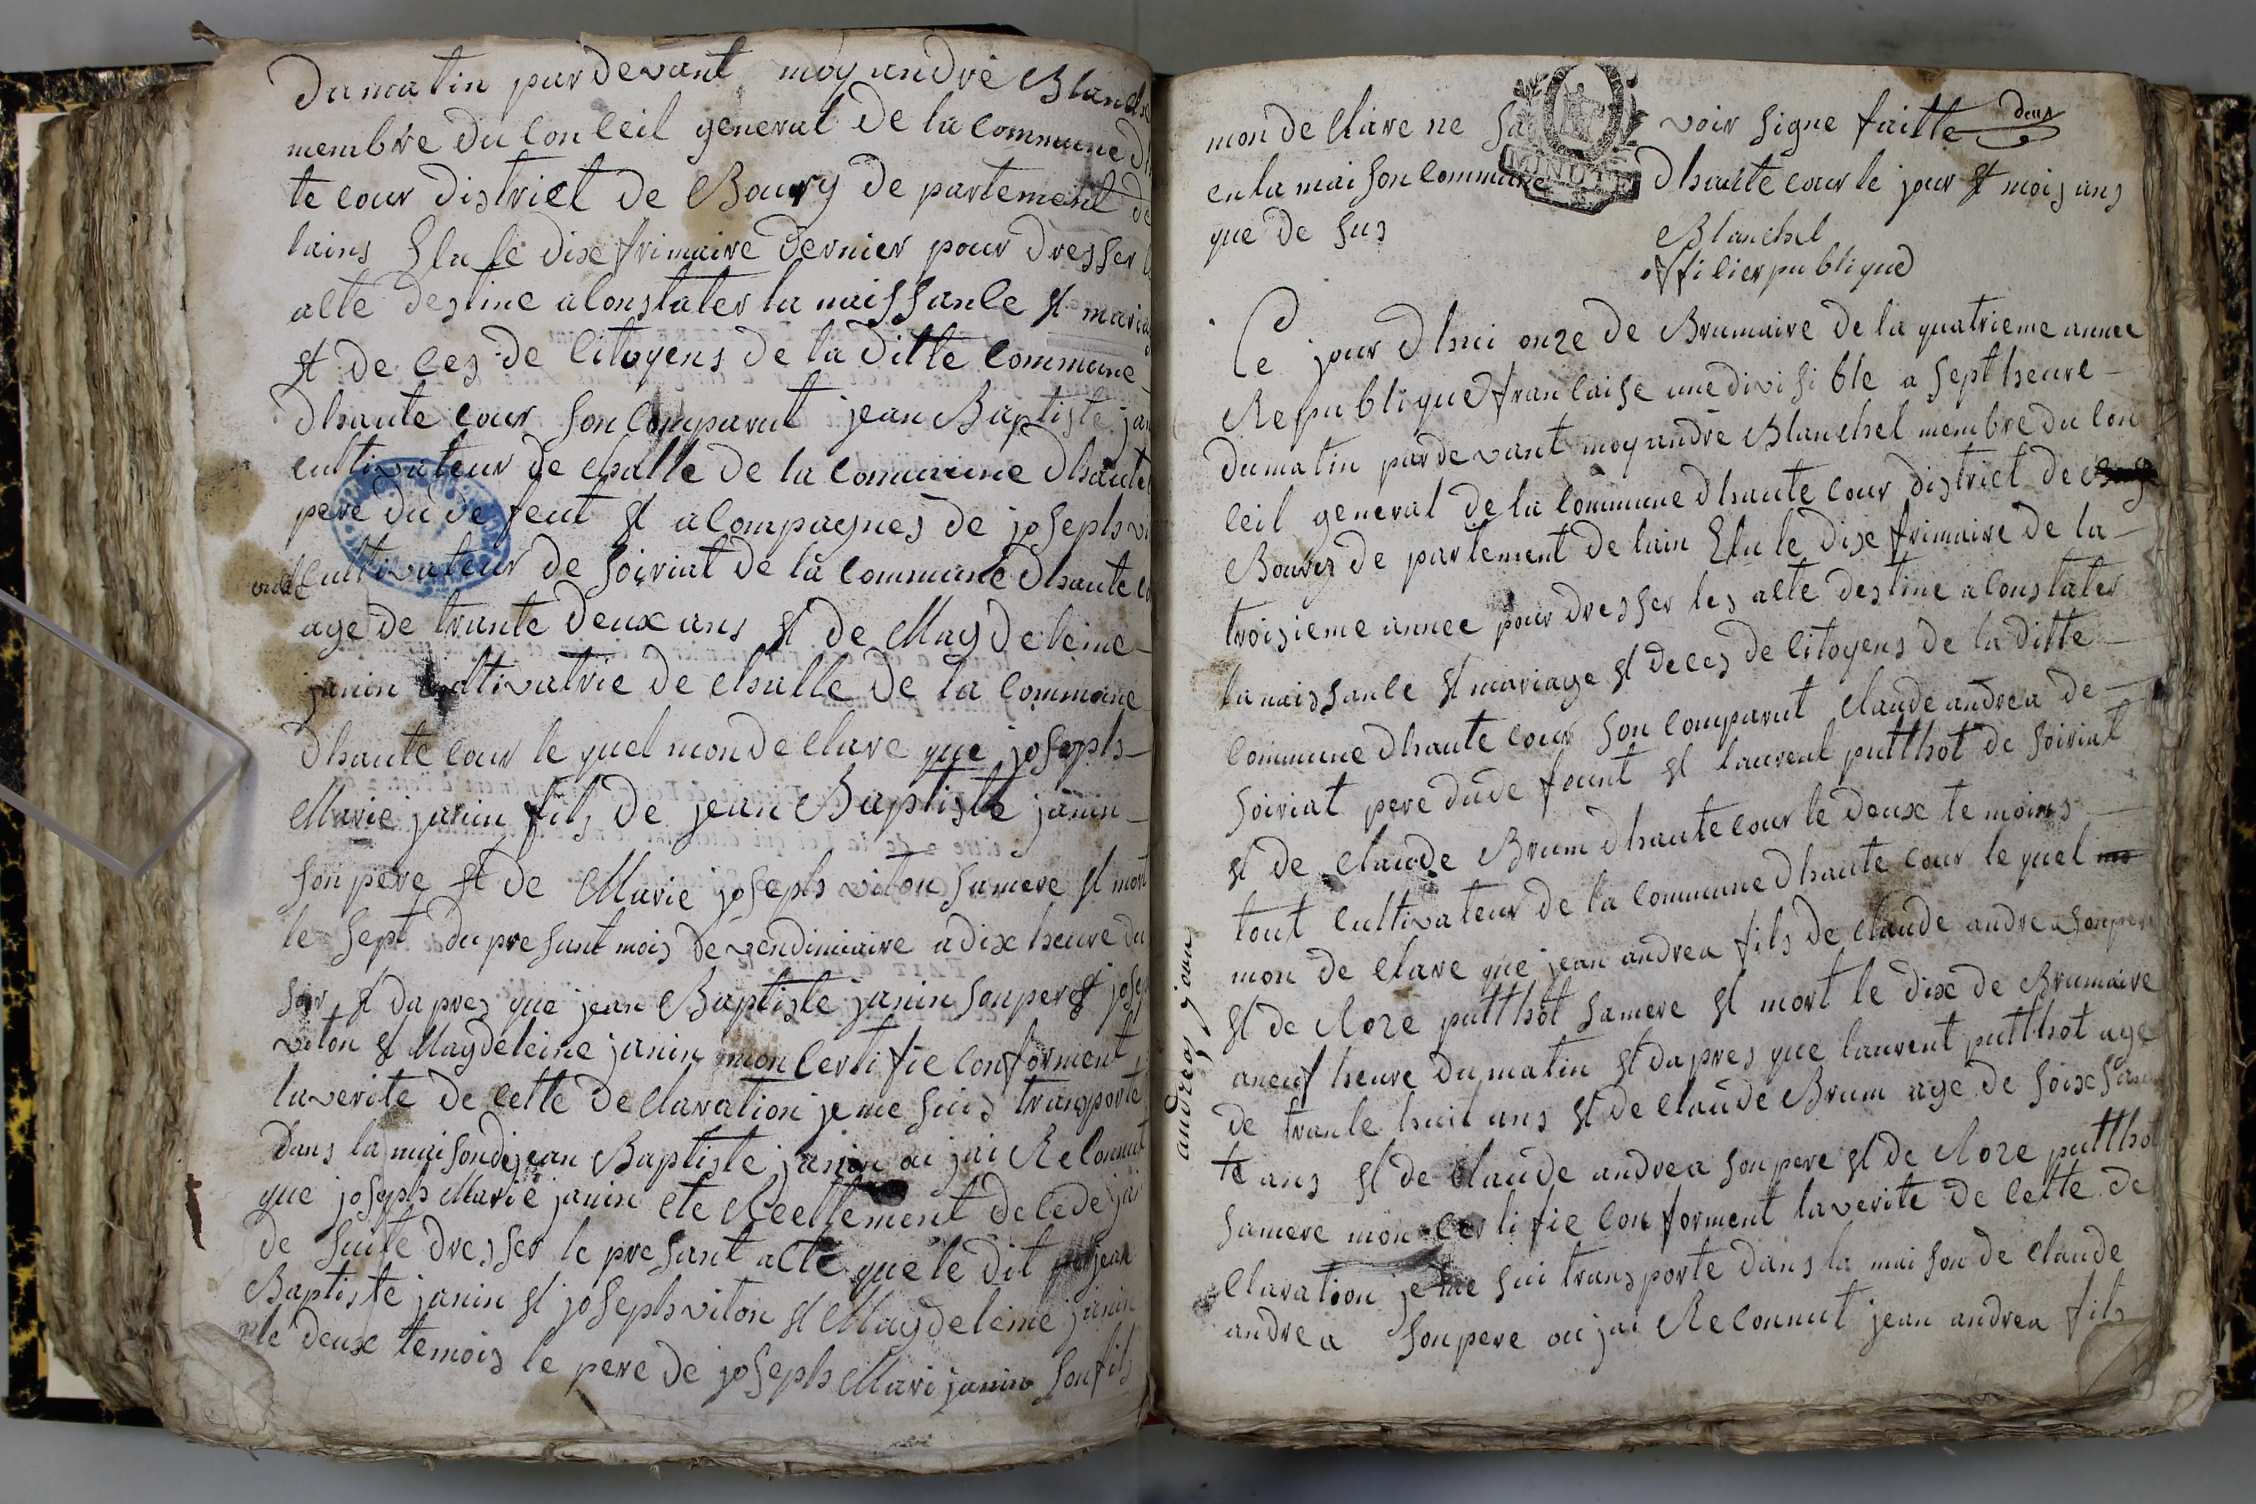 Du matin pardevant moy andrè Blanche
membre du Conceil general De la Commune D
te cour District de Bourg De partement de
lains Elu le Dixe frimaire Dernier pour Dresser
alte Destine a Constater la naissance et maria
et De ces De Citoyens De la Ditte Commune
Dhaute Cour Son Comparut jean Baptiste ja
Cultivateur De challe De la Commune Dhaute
pere Du De feut et acompagnes De joseph vi
Cultivateur De Soiriat De la Commune Dhaute co
age De trante Deux ans et De Magdeleine
janin Cultivatrie De challe De la Commune
Dhaute Cour le quel mon De Clare que joseph
Marie janin fils De jean Baptiste janin
Son pere et De Marie joseph viton Samere et mort
le Sept Du presant mois De vendimiaire a Dix heure Du
Soir et Dapres que jean Baptiste janin Son pere et josep
viton et Magdeleine janin mon Certifie Conforment
laverite De Cette De Claration je me Suis transporte
Dans la maison De jean Baptiste janin ou jai Reconnut
que joseph Marie janin ete Reellement De Cede jai
De Suite Dresser le presant acte que le Dit jean
Baptiste janin et joseph viton et Magdeleine janin
le Deux temois le pere De joseph Mari janin Son fils
mon De Clare ne Sa voir Signe faitte Deux
en la maison Commune Dhaute Cour le jour et mois ans
MINUTE
que De Sus
Blanchel
officier publique
Ce jour Dhui onze De Brumaire De la quatrieme annee
Republique francaise une Divisible a Sept heure
Du matin pardevant moy andrè Blanchel membre Du Con
ceil general De la Commune Dhaute Cour District De
Bourg De partement De lain Elu le Dixe frimaire De la
troisieme annee pour Dresser les alte Destine a Constater
la naissance et mariage et Deces De Citoyens De la Ditte
Commune Dhaute Cour Son Comparut Claude andrea De
Soiriat pere Du De feunt et laurent putthot De Soiriat
et De Claude Brum Dhaute Cour le Deux te moins
tout Cultivateur De la Commune Dhaute Cour le quel
mon De Clare que jean andrea fils De Claude andrea Son pere
et De Roze putthot Samere et mort le Dix De Brumaire
a neuf heure Du matin et Dapres que laurent putthot age
De trante huit ans et De Claude Brum age De Soixsan
te ans et De Claude andrea Son pere et De Roze putthot
Samere mon Certifie Conforment laverite De Cette De
Claration je me Sui transporte Dans la maison De Claude
andrea Son pere ou jai Reconnut jean andrea fils
andreas jean